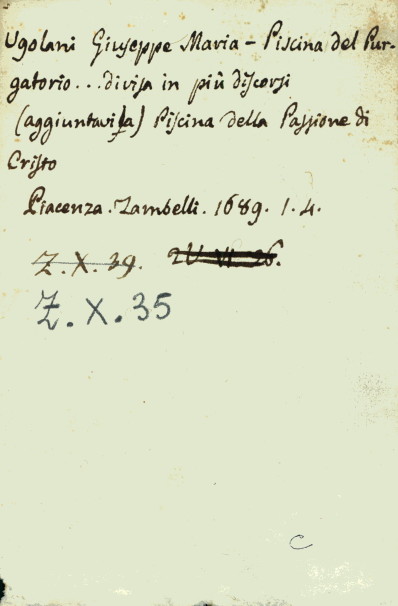 Ugolani Giuseppe Maria - Piscina del Pur-
gatorio... divisa in più discorsi
(aggiuntavisa) Piscina della Passione di
Cristo
Piacenza. Zambelli. 1689. 1. 4.
Z. X. 39. 2U VI 26.
Z. X. 35
C